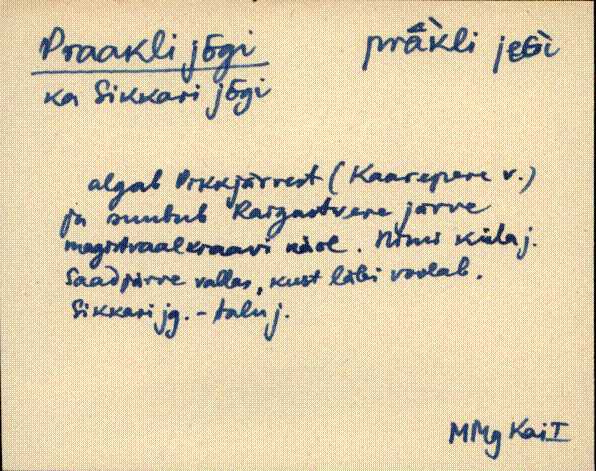 Praakli jõgi
prä̀kli jeGì
ka Sikkari jõgi
algab Pikkjärvest (Kaarepere v.)
ja suubub Raigastvere järve
magistraalkraavi näol. Nimi küla j.
Saadjärve vallas, kust läbi voolab.
Sikkari jg. - talu j.
MMg Kai I